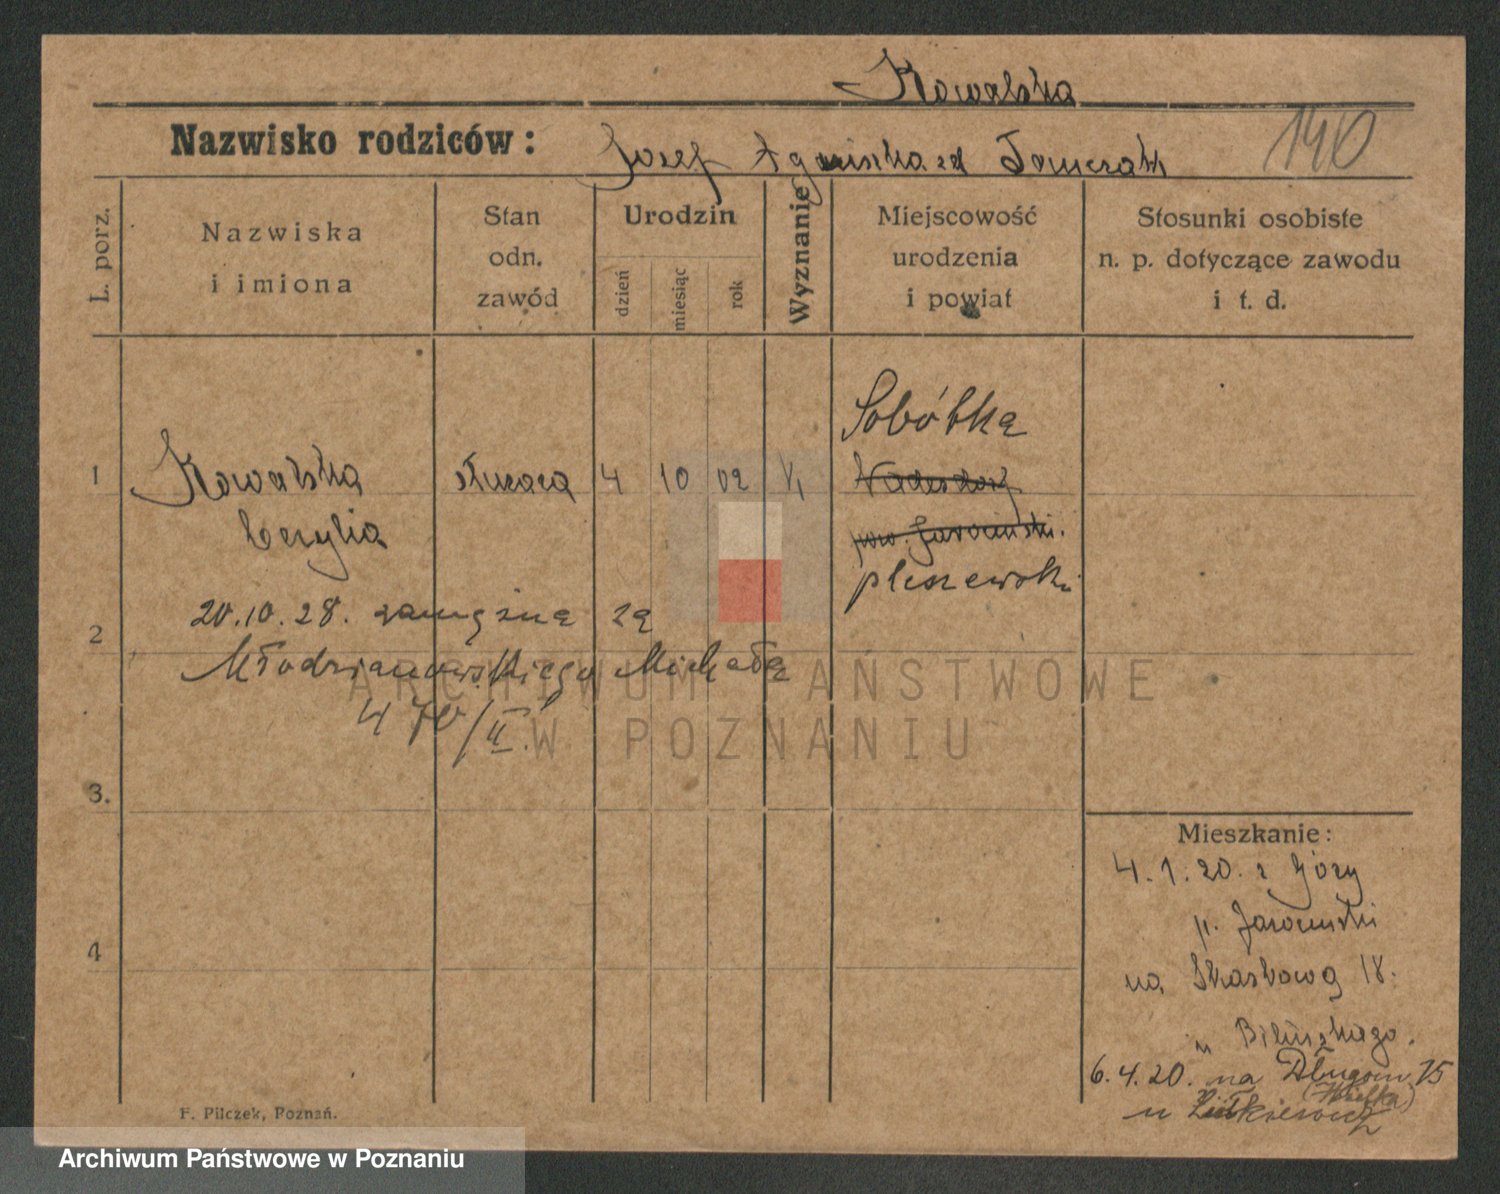 Kowalska
Nazwisko rodziców: Józef Agnieszka zd Tomczak
140
L. porz.
Nazwiska
i imiona
Stan
odn.
zawód
Urodzin
dzień
miesiąc
rok
Wyznanie
Miejscowość
urodzenia
i powiat
Stosunki osobiste
n. p. dotyczące zawodu
i t. d.
Sobótka
1 Kowalska służąca 4 10 02
pow. Jarociński.
Cecylia
pleszewski
20.10.28. zamężna za
2
Młodzianowskiego Michała
470/II.
3.
4
Mieszkanie:
4.1.20. z Góry
p. Jarociński
na Skarbową 18.
u
6.4.20. na Długom 15
u
F. Pilczek, Poznań.
ARCHIWUM PAŃSTWOWE
W POZNANIU
Archiwum Państwowe w Poznaniu